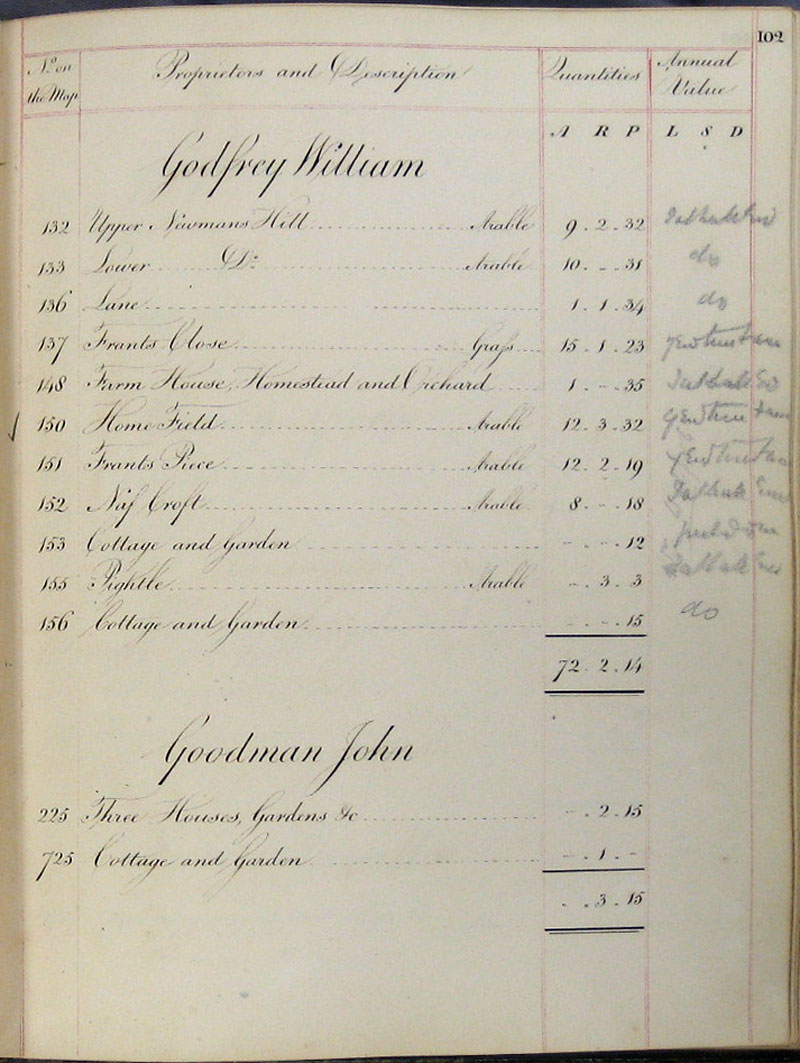 102
No on the Map Proprietors and Description Quantities Annual Value
A R P L S D
Godfrey William
132 Upper Newmans Hill Arable 9 . 2 . 32
133 Lower Do Arable 10 . - . 31 do
136 Lane 1 . 1 . 34 do
137 Frants Close Grass 15 . 1 . 23
148 Farm House, Homestead and Orchard 1 . - . 35
150 Home Field Arable 12 . 3 . 32
151 Frants Piece Arable 12 . 2 . 19
152 Croft Arable 8 . - . 18
153 Cottage and Garden - . - . 12
155 Pightle Arable - . 3 . 3
156 Cottage and Garden - . - . 15 do
72 . 2 . 14
Goodman John
225 Three Houses, Gardens &c - . 2 . 15
725 Cottage and Garden - . 1 . -
- . 3 . 15